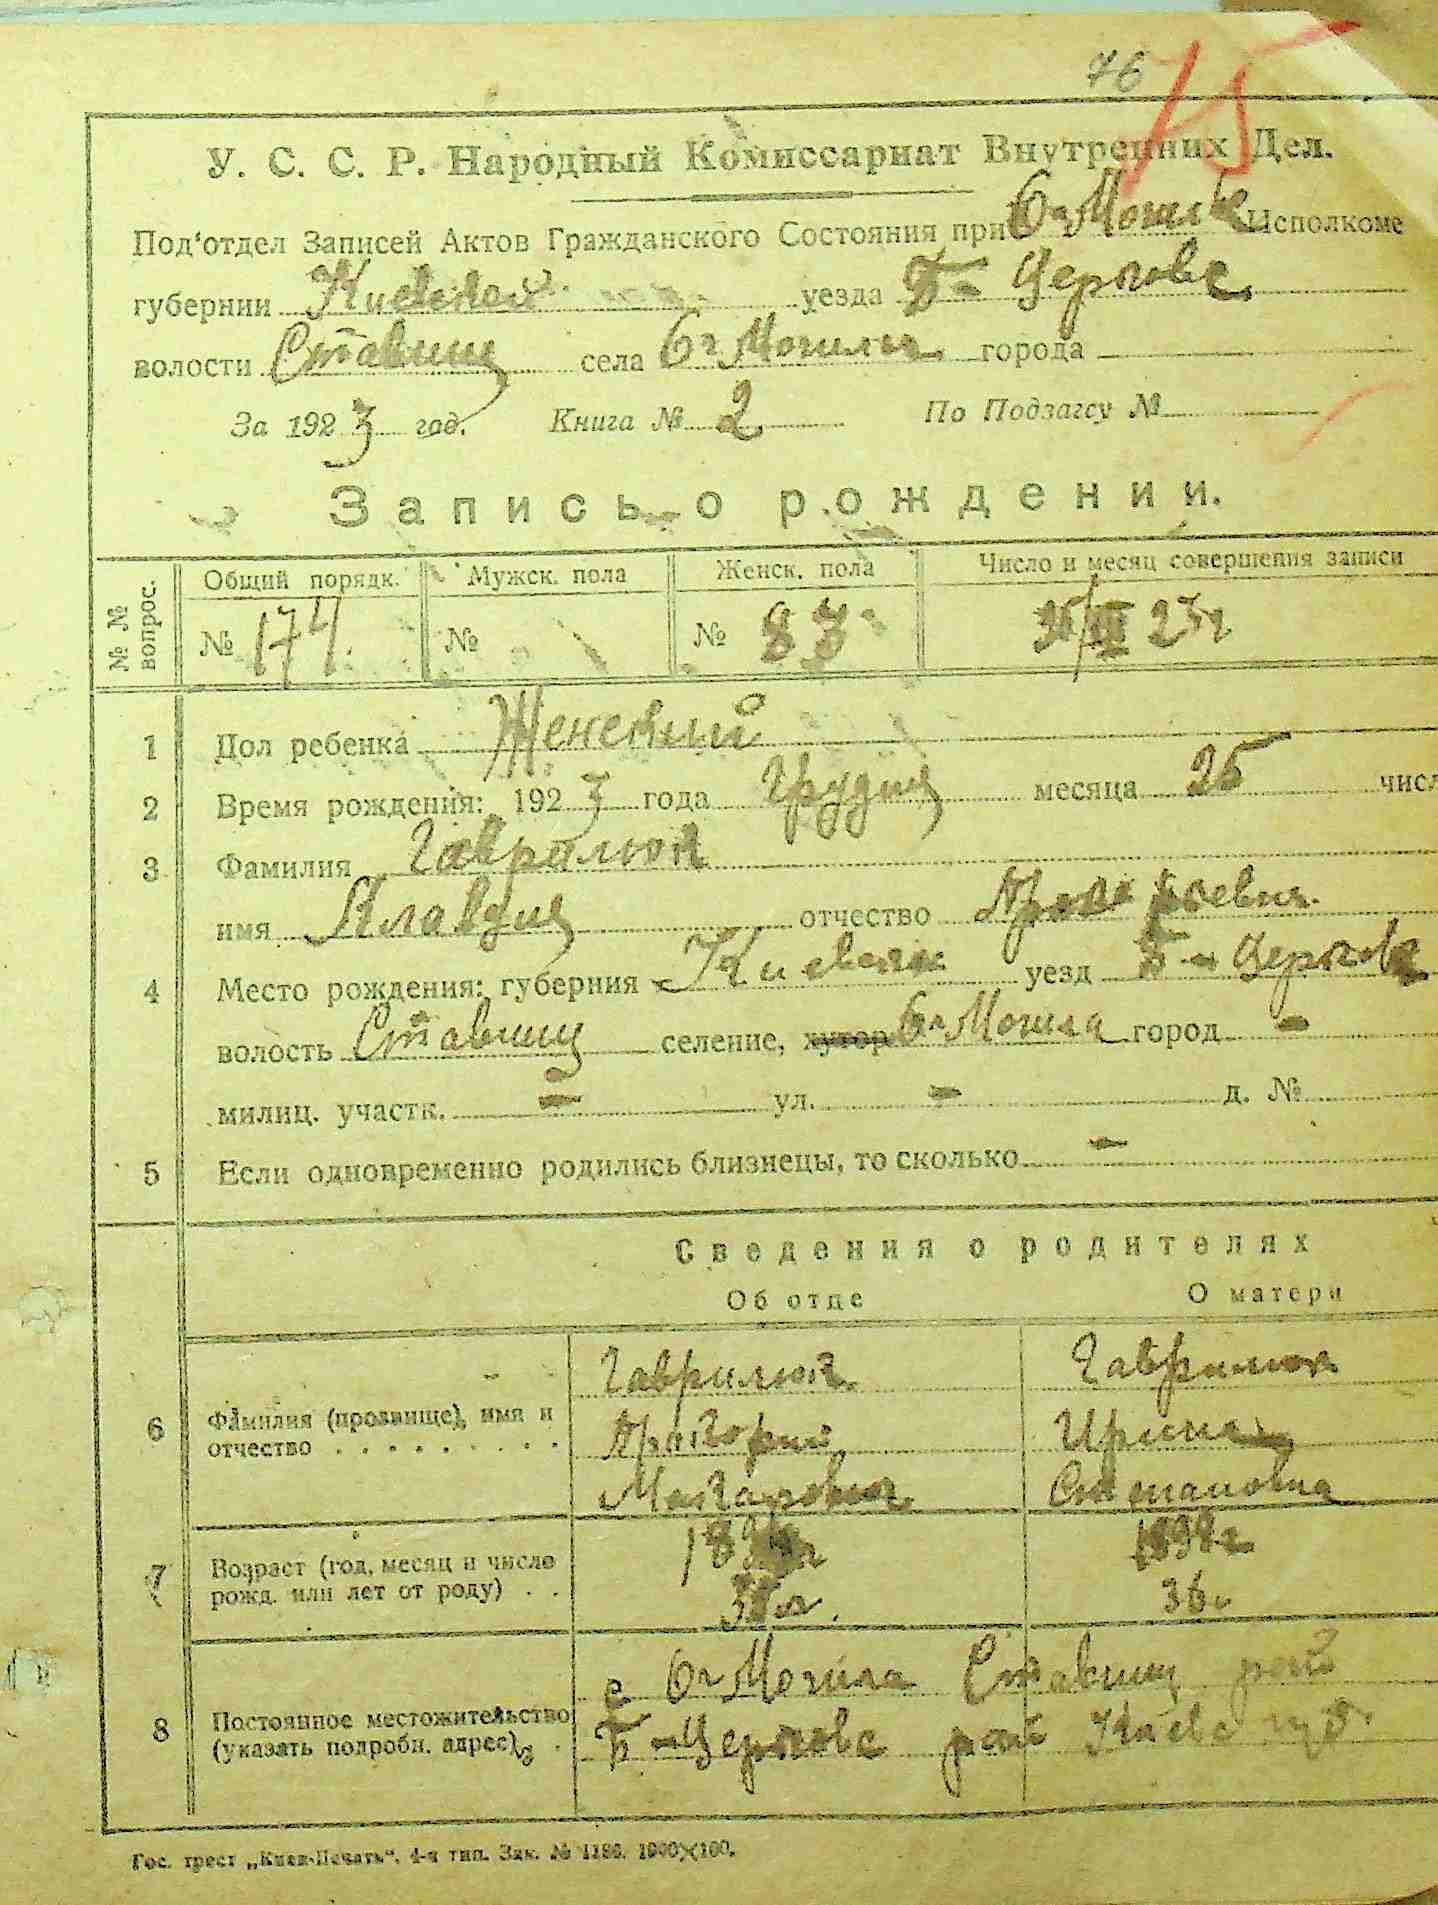 76 75
У. С. С. Р. Народный Комиссариат Внутренних Дел.
Под'отдел Записей Актов Гражданского Состояния при Исполкоме
губернии Киевской уезда Б-Церкове
волости Ставищ села города
За 1923 год. Книга № 2 По Подзагсу №
Запись о рождении.
№ № вопрос. Общий порядк. Мужск. пола Женск. пола Число и месяц совершения записи
№ 174. № № 83 23г
1 Пол ребенка Женский
2 Время рождения: 1923 года Грудня месяца 25 числ
3 Фамилия Гаврилюк
имя Клавдия отчество
4 Место рождения: губерния уезд Б-Церков
волость Ставищ селение, хутор Могила город -
милиц. участк. - ул. - д. №
5 Если одновременно родились близнецы, то сколько -
Сведения о родителях
Об отце О матери
6 Фамилия (прозвище), имя и отчество . . . . . . . . . .
Гаврилюк Гаврилюк
Ирина
Степановна
7 Возраст (год, месяц и число рожд. или лет от роду) . .
36
8 Постоянное местожительство (указать подробн. адрес) .
с Могила Ставищ рай
Б-Церкове Киевс губ.
Гос. трест „Киев-Печать“. 4-я тип. Зак. № 1186. 1000×100.